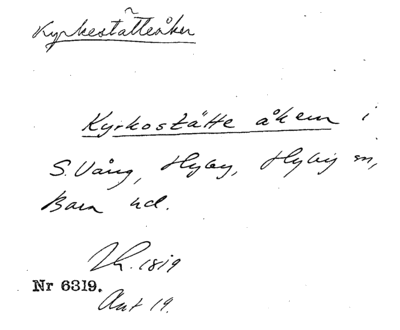 Kyrkestätteåker
Kyrkostätte åkern i
S. Vång, Hyby, Hyby sn,
Bara hd.
Nr 6319.
Akt 19.